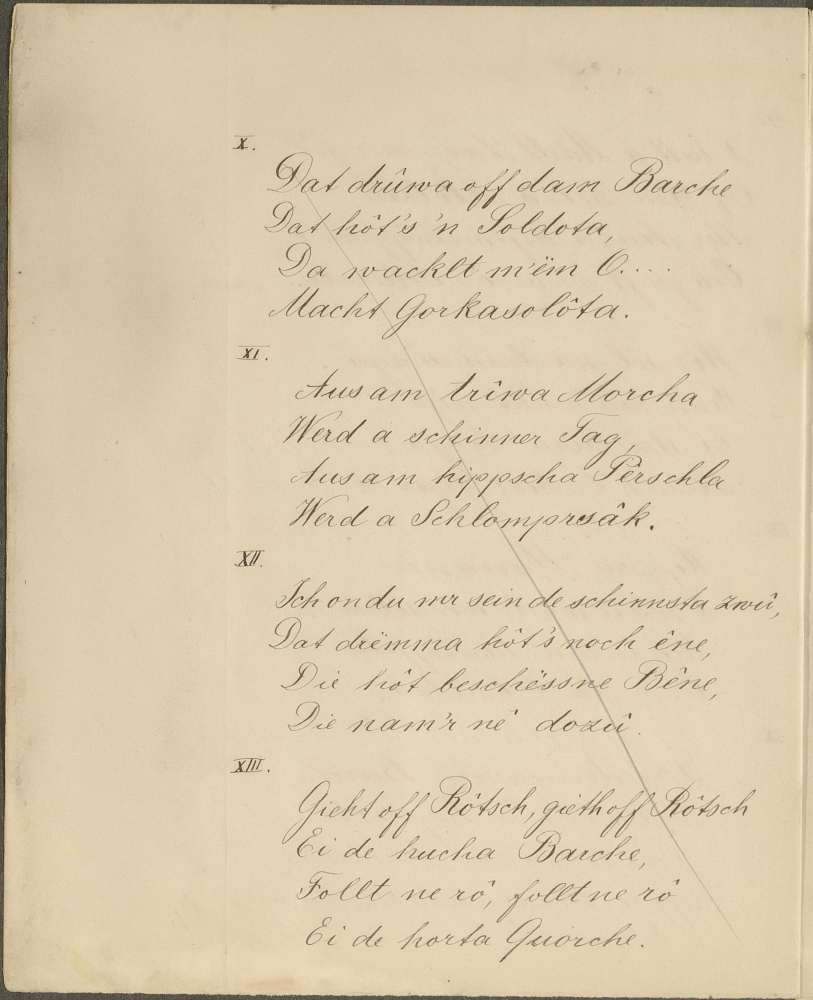 X.
Dat drûwa off dam Barche
Dat hôt's 'n Soldota,
Da wacklt m'ëm O....
Macht Gorkasolôta.
XI.
Aus am trîwa Morcha
Werd a schinner Tag,
Aus am hippscha Pêrschla
Werd a Schlomprsâk.
XII.
Ich on du mr sein de schinnsta zwû,
Dat drëmma hôt's noch êne,
Die hôt beschëssne Bêne,
Die nam'r nê dozû.
XIII.
Gieht off Rôtsch, gieth off Rôtsch
Ei de hucha Barche,
Follt ne rô, follt ne rô
Ei de horta Quorche.